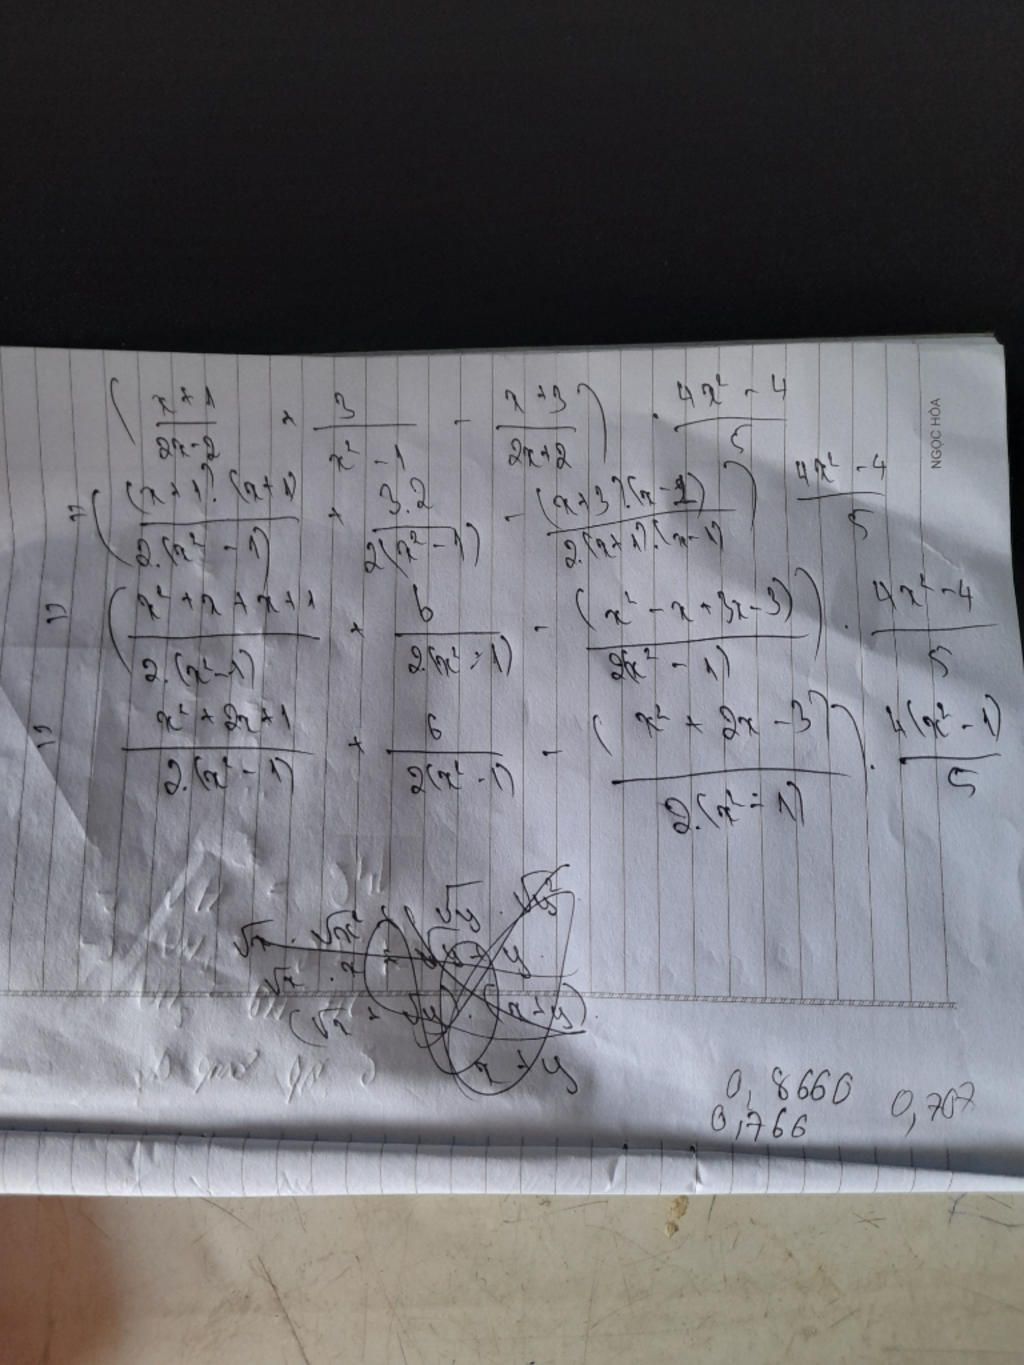 ( x+1 / 2x-2 + 3 / x² - 1 - x+3 / 2x+2 ) . 4x² - 4 / 5
= ( (x+1).(x+1) / 2.(x² - 1) + 3.2 / 2(x² - 1) - (x+3).(x-1) / 2.(x+1).(x-1) ) 4x² - 4 / 5
= ( x² + x + x + 1 / 2.(x² - 1) + 6 / 2.(x² - 1) - (x² - x + 3x - 3) / 2(x² - 1) ) . 4x² - 4 / 5
= x² + 2x + 1 / 2.(x² - 1) + 6 / 2(x² - 1) - ( x² + 2x - 3 / 2.(x² - 1) ) . 4(x² - 1) / 5
x + y
0,8660
0,766
0,707
NGỌC HÒA